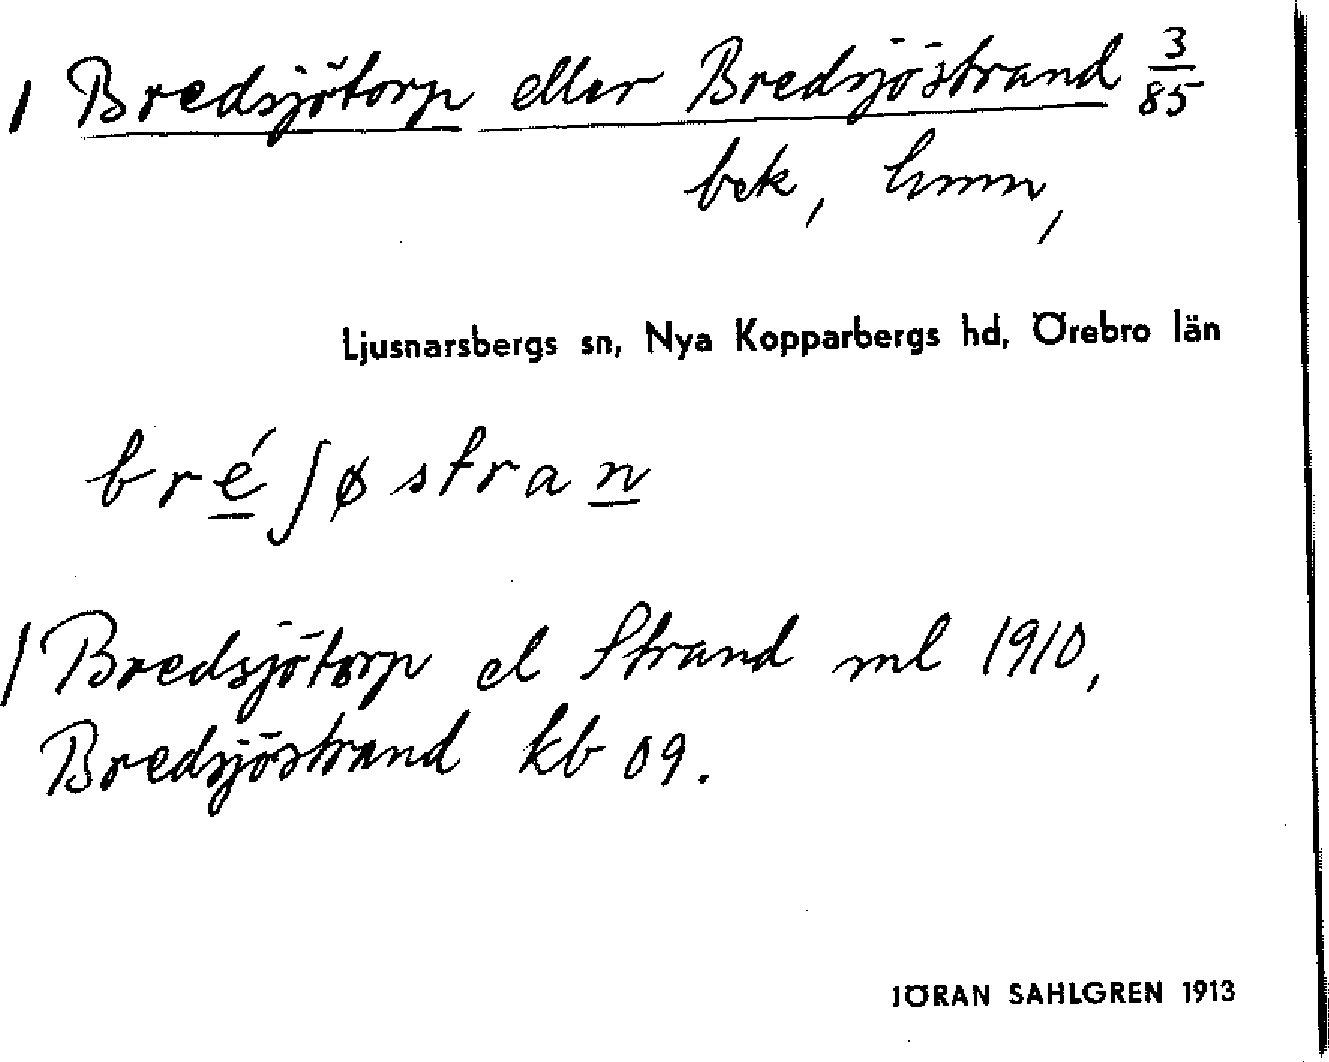 / Bredsjötorp eller Bredsjöstrand 3/85
bek, hmn,
Ljusnarsbergs sn, Nya Kopparbergs hd, Örebro län
bré ʃøstran
/ Bredsjötorp el Strand ml 1910,
Bredsjöstrand kb 09.
JÖRAN SAHLGREN 1913